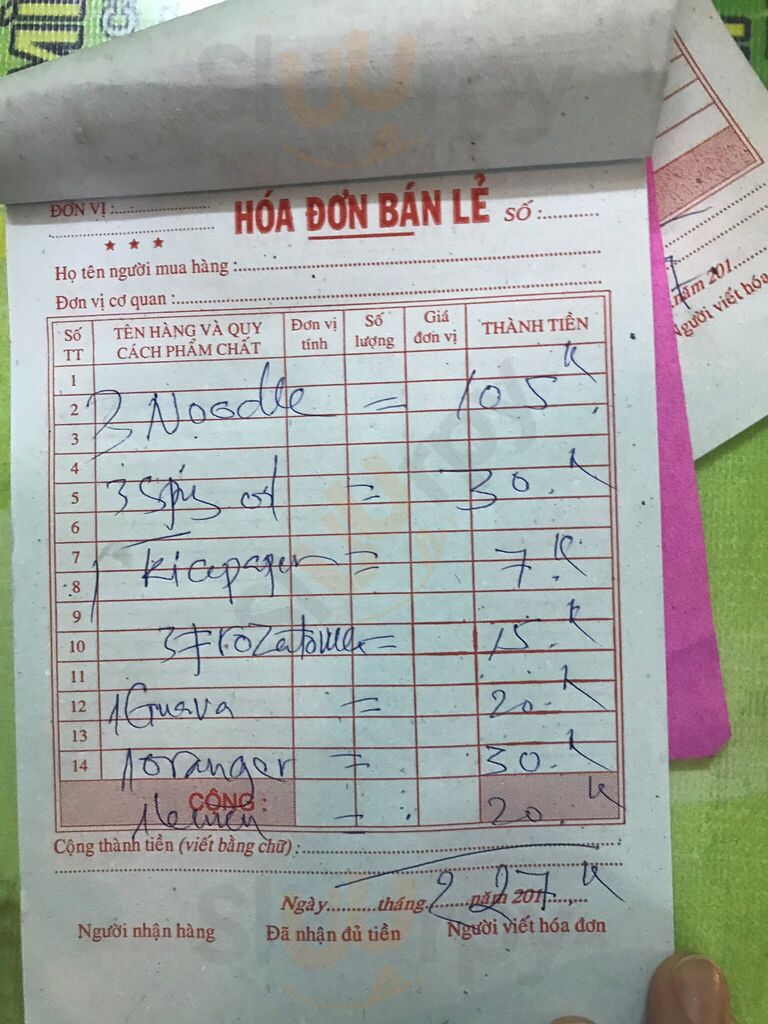 ĐƠN VỊ :
HÓA ĐƠN BÁN LẺ
SỐ :
Họ tên người mua hàng :
Đơn vị cơ quan :
Số TT
TÊN HÀNG VÀ QUY CÁCH PHẨM CHẤT
Đơn vị tính
Số lượng
Giá đơn vị
THÀNH TIỀN
1
2 3 Noodle = 105.K
3
4
5 3 = 30.K
6
7
8 1 Ricepaper = 7.K
9
10 3 = 15.K
11
12 1 Guava = 20.K
13
14 1 oranger = 30.K
CỘNG :
1 = 20.K
Cộng thành tiền (viết bằng chữ) :
227 K
Ngày.........tháng.........năm 201
Người nhận hàng Đã nhận đủ tiền Người viết hóa đơn
năm 201
Người viết hóa
slurpy